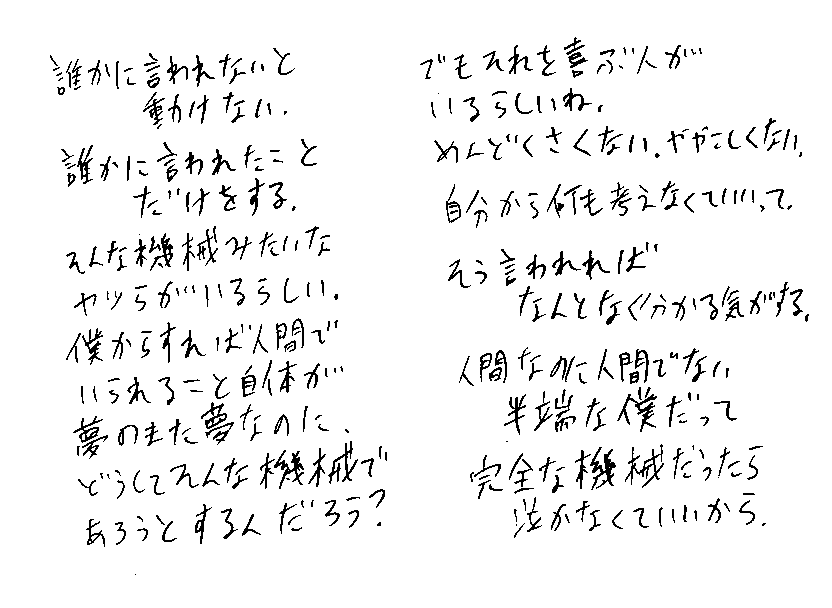 誰かに言われないと
動けない.
誰かに言われたこと
だけをする.
そんな機械みたいな
ヤツらがいるらしい.
僕からすれば人間で
いられること自体が
夢のまた夢なのに、
どうしてそんな機械で
あろうとするんだろう?
でもそれを喜ぶ人が
いるらしいね.
めんどくさくない.ややこしくない.
自分から何も考えなくていいって.
そう言われれば
なんとなく分かる気がする.
人間なのに人間でない
半端な僕だって
完全な機械だったら
泣かなくていいから.